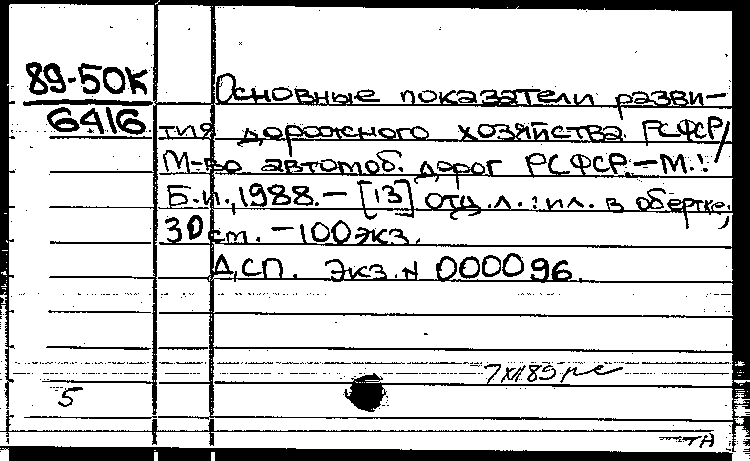 89-50К
6416
Основные показатели разви-
тия дорожного хозяйства РСФСР/
М-во автомоб. дорог РСФСР.-М.:
Б.и., 1988.- [13] отд.л.: ил. в обертке;
30 см. -100 экз.
ДСП. Экз. N 000096.
5